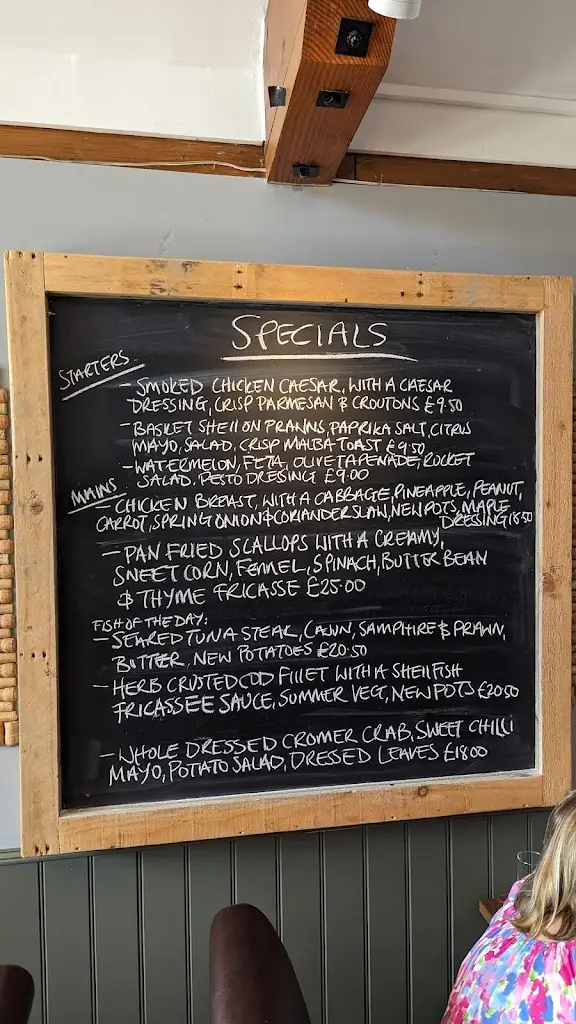 SPECIALS
STARTERS
- SMOKED CHICKEN CAESAR, WITH A CAESAR
DRESSING, CRISP PARMESAN & CROUTONS £9.50
- BASKET SHELL ON PRAWNS, PAPRIKA SALT, CITRUS
MAYO, SALAD, CRISP MALBA TOAST £9.50
- WATERMELON, FETA, OLIVE TAPENADE, ROCKET
SALAD, PESTO DRESSING £9.00
MAINS
- CHICKEN BREAST, WITH A CABBAGE, PINEAPPLE, PEANUT,
CARROT, SPRING ONION & CORIANDER SLAW, NEW POTS, MAPLE
DRESSING 18.50
- PAN FRIED SCALLOPS WITH A CREAMY,
SWEETCORN, FENNEL, SPINACH, BUTTER BEAN
& THYME FRICASSE £25.00
FISH OF THE DAY:
- SEARED TUNA STEAK, CAJUN, SAMPHIRE & PRAWN,
BUTTER, NEW POTATOES £20.50
- HERB CRUSTED COD FILLET WITH A SHELLFISH
FRICASSEE SAUCE, SUMMER VEG, NEW POTS £20.50
- WHOLE DRESSED CROMER CRAB, SWEET CHILLI
MAYO, POTATO SALAD, DRESSED LEAVES £18.00